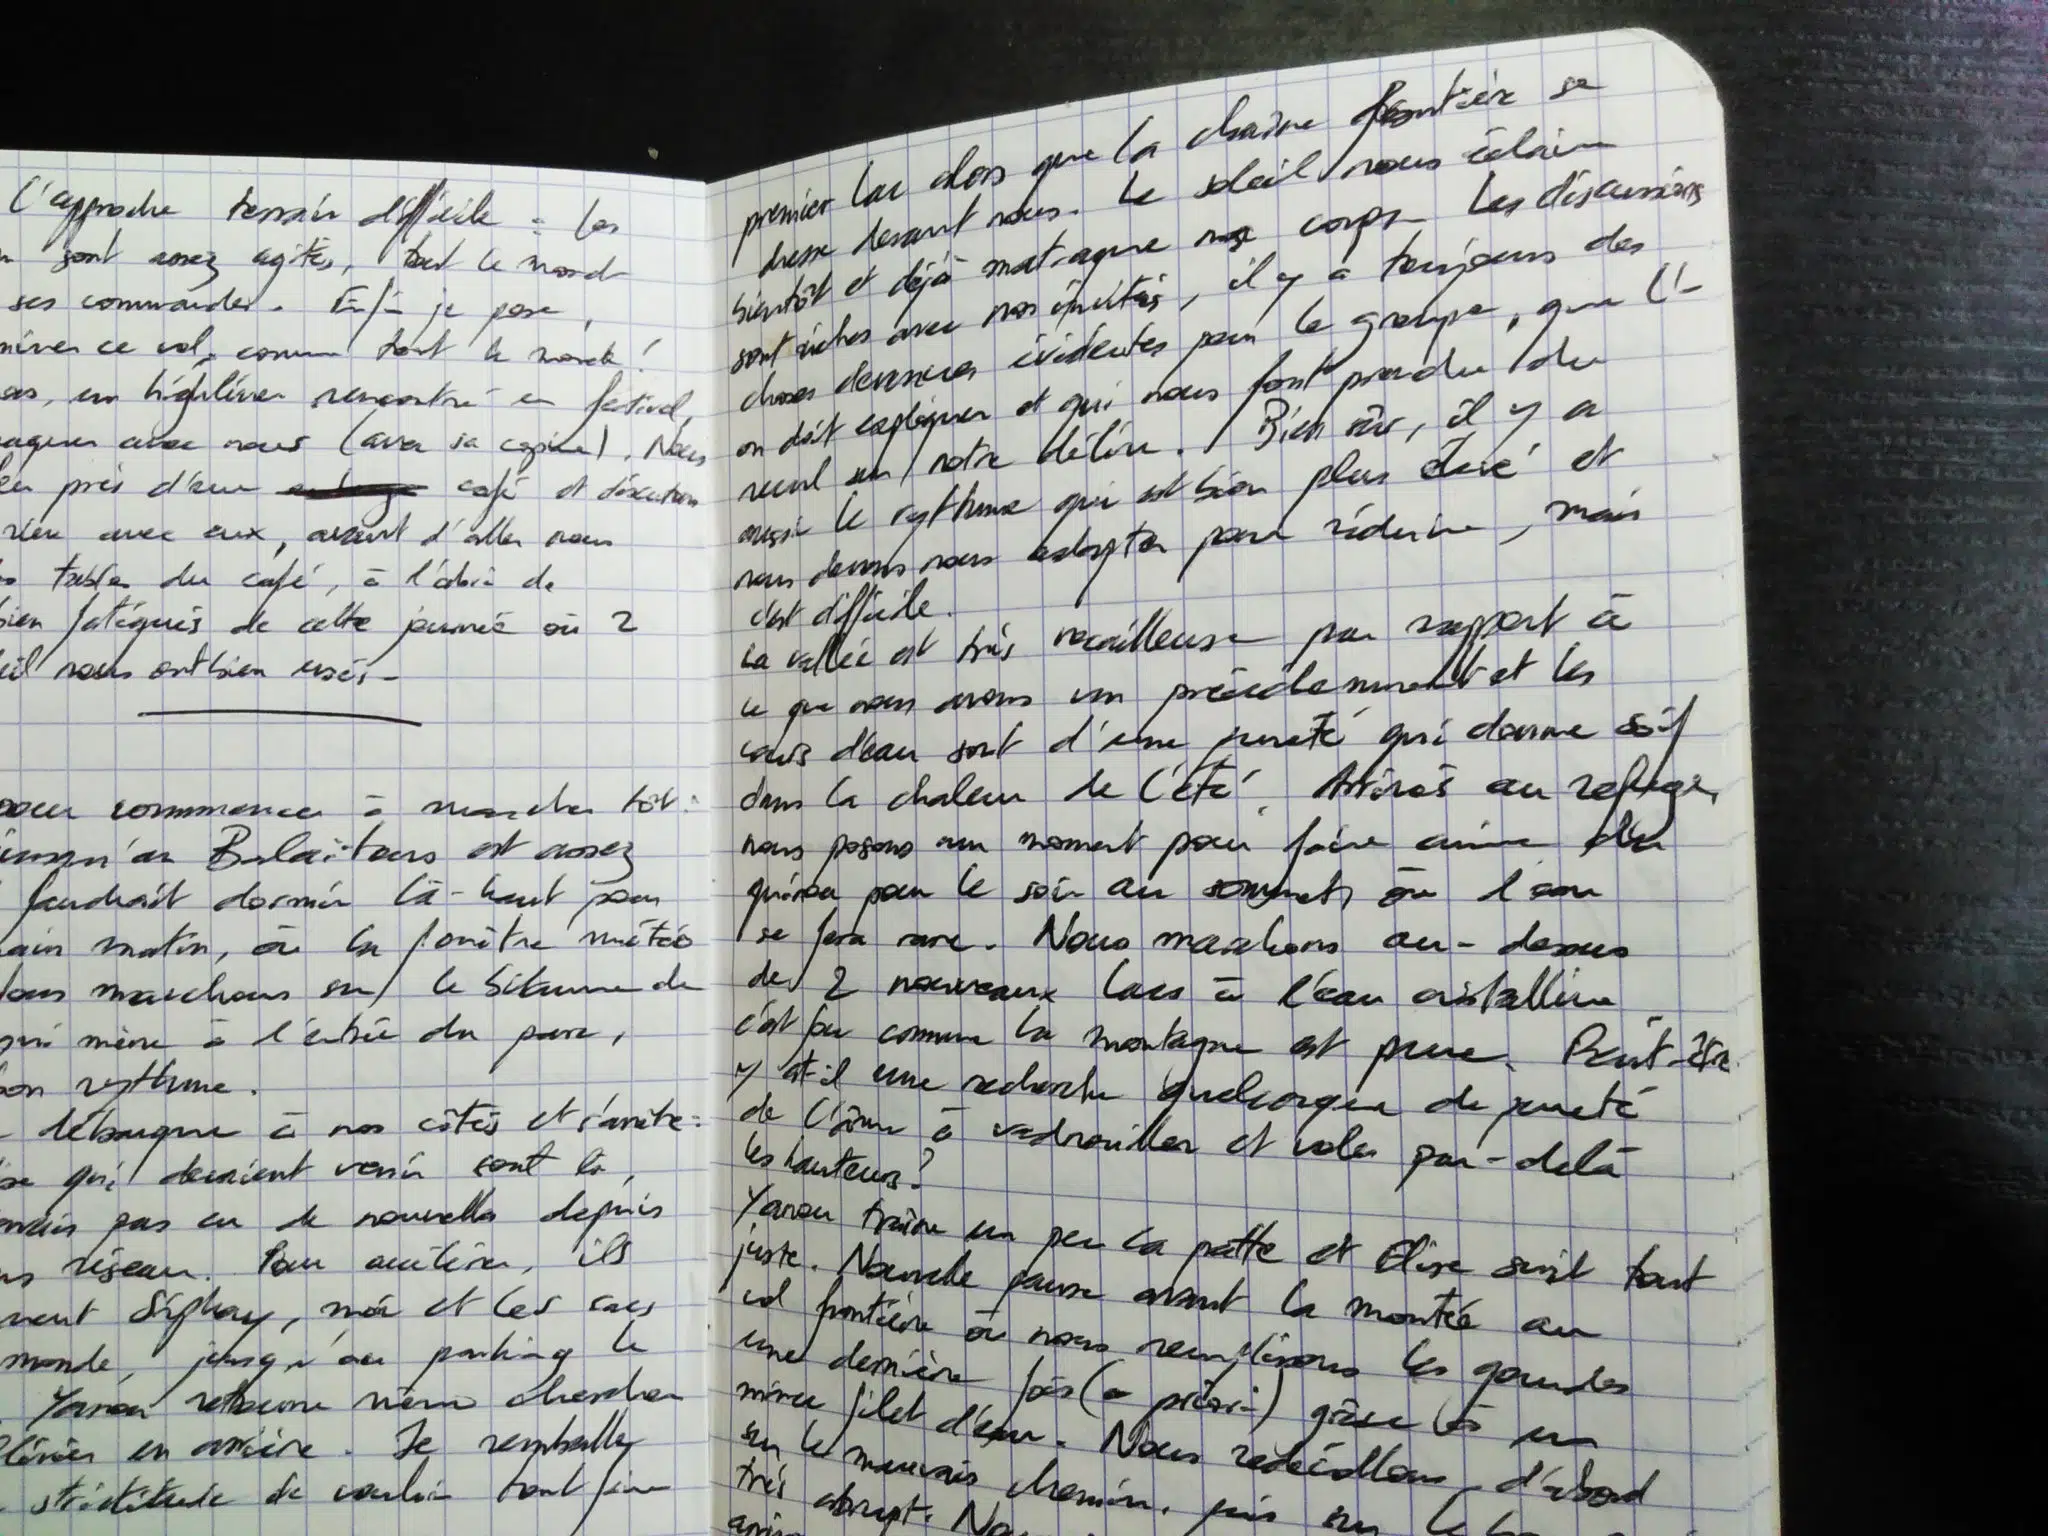 L'approche terrain difficile : les
sont assez agités, tout le monde
ses commandes. Enfin je pose,
ce vol, comme tout le monde !
un highliner rencontré en festival,
avec nous (avec sa copine). Nous
près d'un café et discutons
avec eux, avant d'aller nous
tables du café, à l'abri de
fatigués de cette journée où 2
nous ont bien usés.
pour commencer à marcher tôt :
jusqu'au Balaïtous est assez
faudrait dormir là-haut pour
matin, où la fenêtre météo
marchons sur le bitume de
qui mène à l'entrée du parc,
bon rythme.
débarque à nos côtés et s'arrête :
qui devaient venir sont là,
pas eu de nouvelles depuis
réseau. Pour accélérer, ils
moi et les sacs
monde, jusqu'au parking le
Yanou retourne même chercher
en arrière. Je remballe
de vouloir tout faire
premier lac alors que la chaîne frontière se
dresse devant nous. Le soleil nous éclaire
bientôt et déjà matraque nos corps. Les discussions
sont riches avec nos invités, il y a toujours des
choses devenues évidentes pour le groupe, que l'-
on doit expliquer et qui nous font prendre du
recul sur notre délire. Bien sûr, il y a
aussi le rythme qui est bien plus élevé et
nous devons nous adapter pour réduire, mais
c'est difficile.
La vallée est très rocailleuse par rapport à
ce que nous avons vu précédemment et les
cours d'eau sont d'une pureté qui donne soif
dans la chaleur de l'été. Arrivés au refuge,
nous posons un moment pour faire cuire du
quinoa pour le soir au sommet, où l'eau
se fera rare. Nous marchons au-dessus
de 2 nouveaux lacs à l'eau cristalline
c'est fou comme la montagne est pure. Peut-être
y at-il une recherche quelconque de pureté
de l'âme à vadrouiller et voler par-delà
les hauteurs ?
Yanou traîne un peu la patte et Elise suit tout
juste. Nouvelle pause avant la montée au
col frontière où nous remplissons les gourdes
une dernière fois (a priori) grâce à un
mince filet d'eau. Nous redécollons d'abord
sur le mauvais chemin, puis sur le
très abrupt.